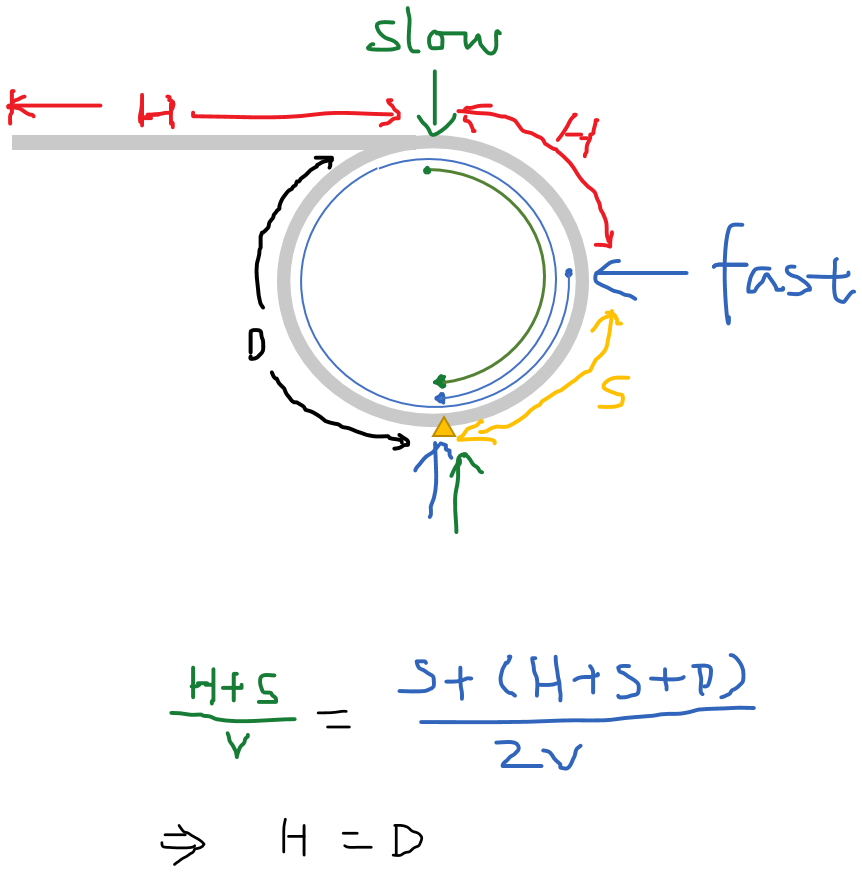 slow
H
H
fast
D
S
H+S/V = S+(H+S+D)/2V
⇒ H = D